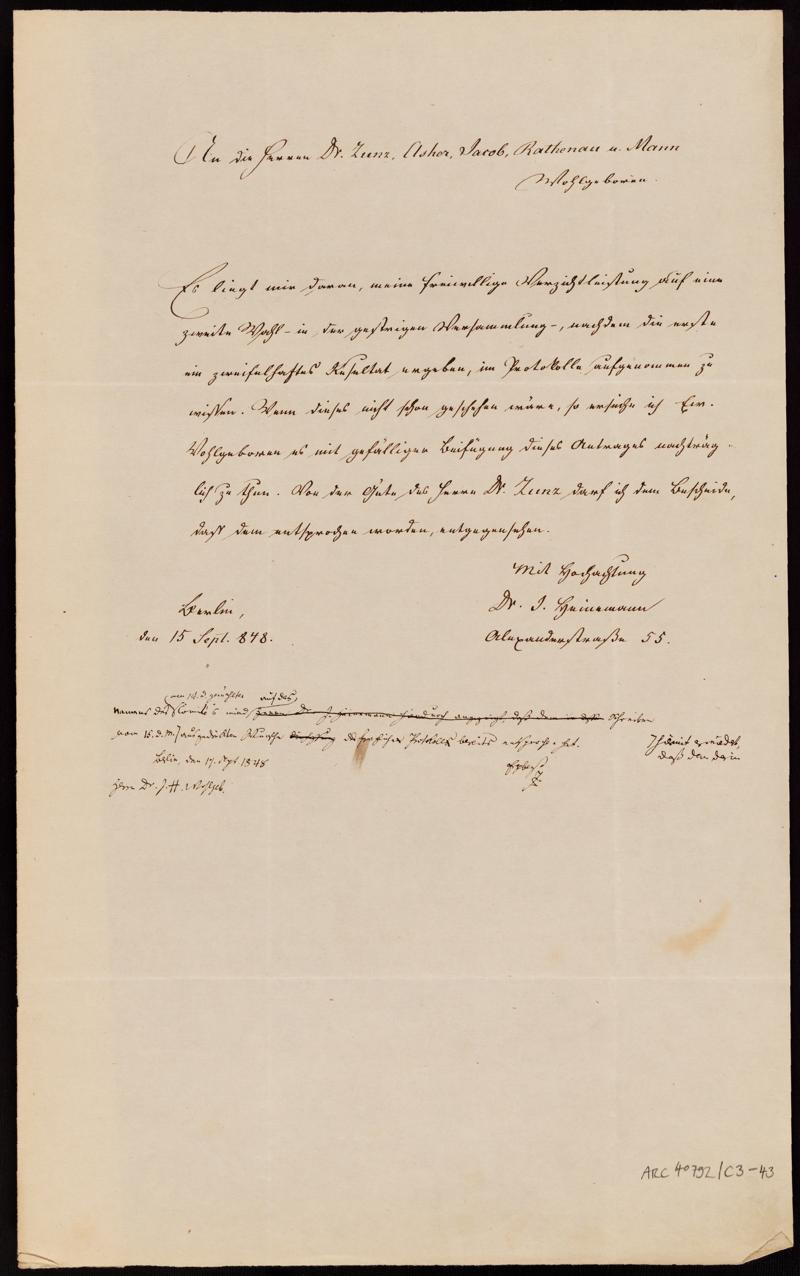 An die Herren Dr. Zunz, Asher, Jacob, Rathenau u. Mann
Wohlgeboren.
Es liegt mir daran, meine freiwillige Verzichtleistung auf eine
zweite Wahl - in der gestrigen Versammlung -, nachdem die erste
ein zweifelhaftes Resultat ergeben, im Protokolle aufgenommen zu
wissen. Wenn dieses nicht schon geschehen wäre, so ersuche ich Ew.
Wohlgeboren es mit gefälliger Beifügung dieses Antrages nachträg-
lich zu thun. Von der Güte des Herrn Dr. Zunz darf ich dem Bescheide,
daß dem entsprochen worden, entgegensehen.
Mit Hochachtung
Berlin, Dr. J. Heinemann
den 15 Sept. 848. Alexanderstraße 55.
auf das
Namens des Comité's wird Herrn Dr. J. Heinemann hierdurch angezeigt, daß dem in Schreiben
vom 15. d. M. ausgedrückten Wunsche des Protokolles bereits entsprochen hat.
daß dem darin
Berlin, den 17. Sept 1848
Herrn Dr. J. H. Wohlgeb.
ARC 4° 792/C3-43